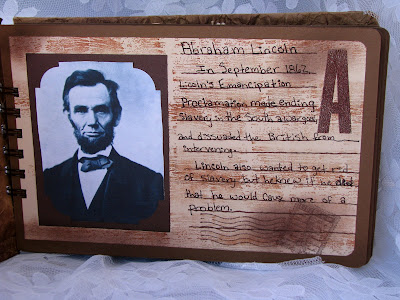 Abraham Lincoln
A
In September 1862
Licoln's Emancipation
Proclamation made ending
slavery in the South a war goal,
and dissuaded the British from
intervening.
Lincoln also wanted to get rid
of slavery but he knew if he did
that he would cause more of a
problem.